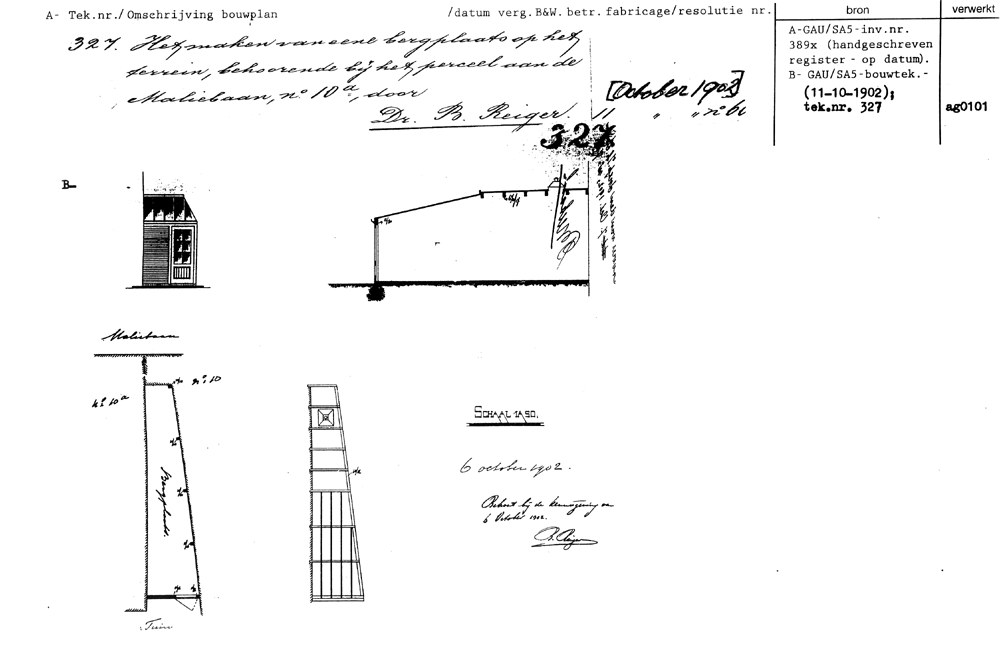 A- Tek.nr./Omschrijving bouwplan /datum verg.B&W. betr. fabricage/resolutie nr. bron verwerkt
327. Het maken van eene bergplaats op het
terrein, behoorende bij het perceel aan de
Maliebaan, nº 10a, door
Dr. B. Reiger. [October 1902]
" " " nº 6
A-GAU/SA5-inv.nr.
389x (handgeschreven
register - op datum).
B- GAU/SA5-bouwtek.-
(11-10-1902);
tek.nr. 327
ag0101
327
B-
Maliebaan
nº 10
nº 10a
Bergplaats.
Tuin
SCHAAL 1A50.
6 october 1902.
Behoort bij de kennisgeving van
6 October 1902.